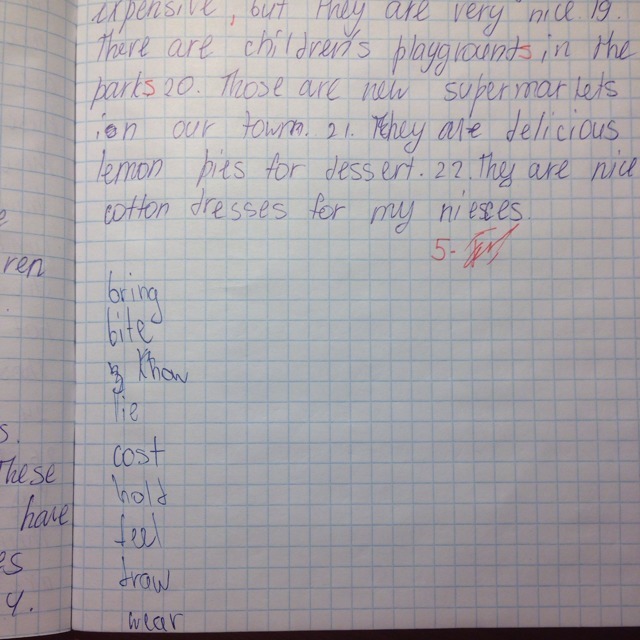 expensive, but they are very nice. 19.
There are children's playgrounds in the
parks 20. Those are new supermarkets
in our town. 21. They are delicious
lemon pies for dessert. 22. They are nice
cotton dresses for my nieces.
5-
ren
bring
bite
know
lie
cost
s.
These
hold
have
feel
es
draw
y.
wear